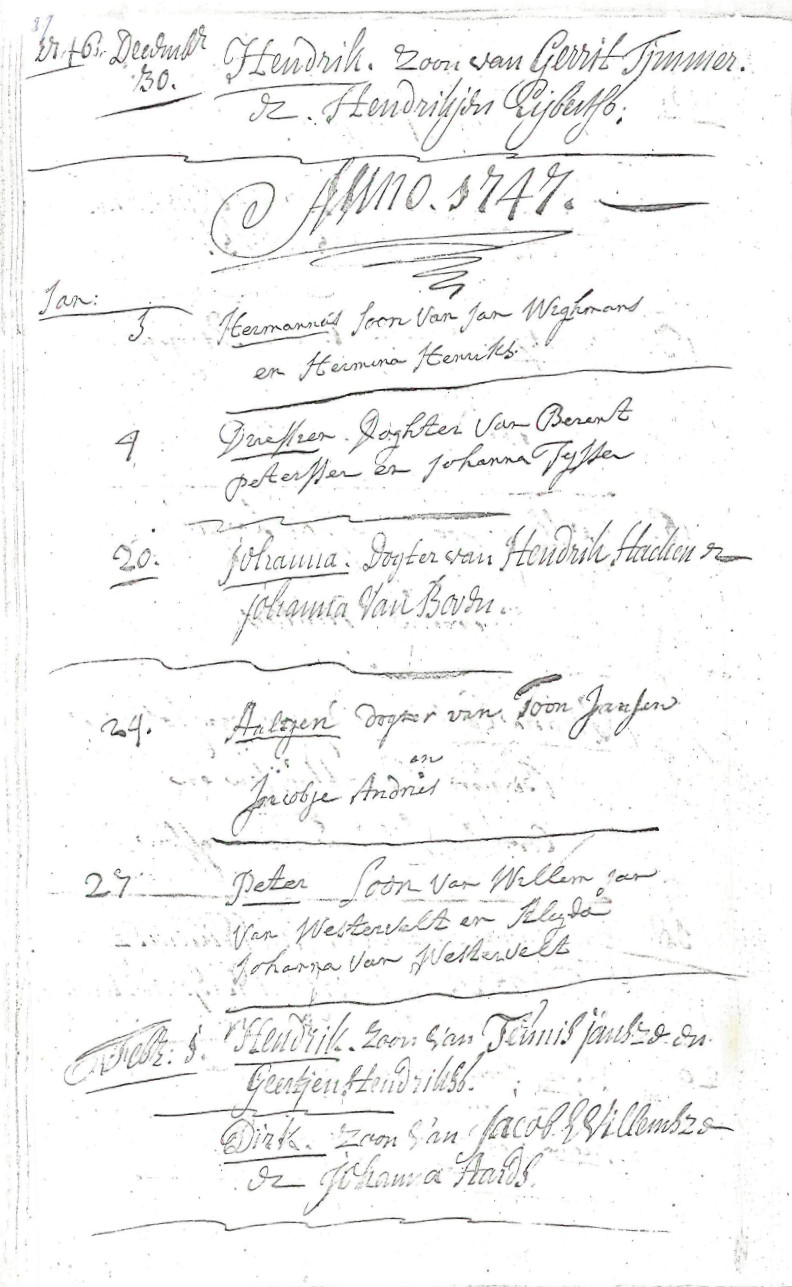 Decembr Hendrik. zoon van Gerrit Tymmer.
30. en. Hendrikjen Eijberts.
Anno. 1747.
Jan:
5 Hermannus Soon Van Jan Weghmans
en Hermina Henriks.
9 Doghter Van Berent
peterssen en Johanna Tyssen
20. Johanna. Dogter van Hendrik Hacken en
Johanna Van Boven.
24. Aaltjen dogter van Toon Jansen
en
Jacobje Andries
27 Peter Soon Van Willem jan
Van Westervelt en Aleyda
Johanna van Westervelt
Febr: 5. Hendrik. zoon van Teunis janszen en
Geertjen Hendriks.
Dirk. zoon van Jacob Willemsze
en Johanna Aards.